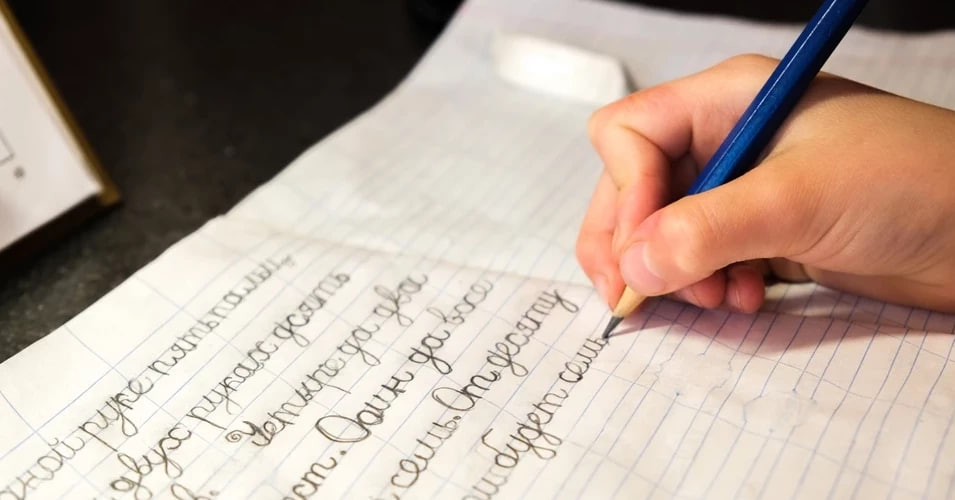 дной руке пять пальц
двух руках десять
Четыре да два
ст. Один да восе
семь. От десяту
будет семь